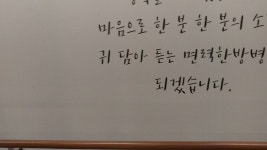 마음으로 한 분 한 분의 소
귀 담아 듣는 면력한방병
되겠습니다.